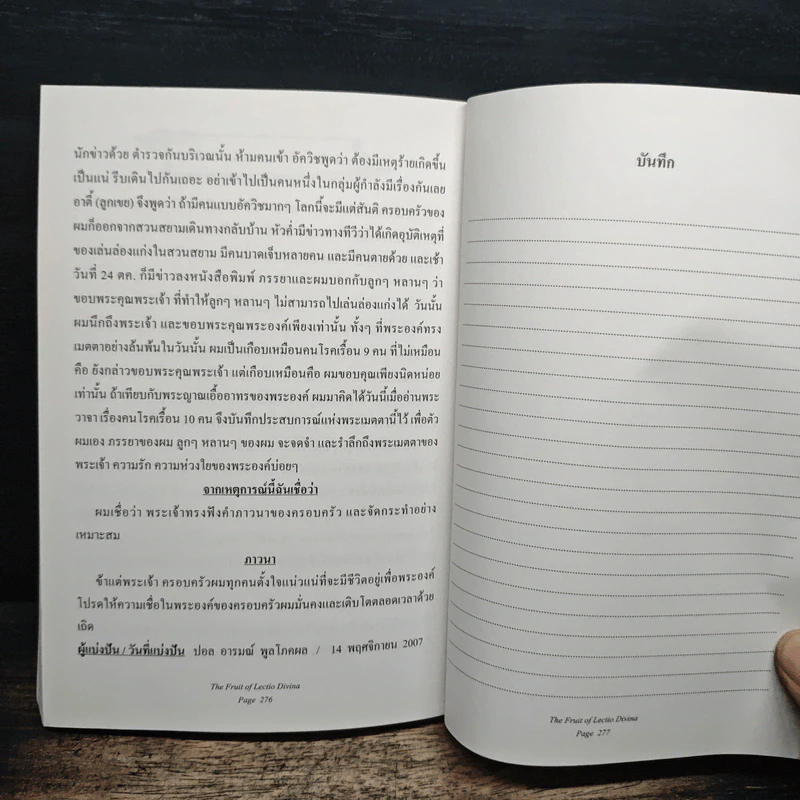 นักข่าวด้วย ตำรวจกันบริเวณนั้น ห้ามคนเข้า อัควิชพูดว่า ต้องมีเหตุร้ายเกิดขึ้น
เป็นแน่ รีบเดินไปกันเถอะ อย่าเข้าไปเป็นคนหนึ่งในกลุ่มผู้กำลังมีเรื่องกันเลย
อาตี๋ (ลูกเขย) จึงพูดว่า ถ้ามีคนแบบอัควิชมากๆ โลกนี้จะมีแต่สันติ ครอบครัวของ
ผมก็ออกจากสวนสยามเดินทางกลับบ้าน หัวค่ำมีข่าวทางทีวีว่าได้เกิดอุบัติเหตุที่
ของเล่นล่องแก่งในสวนสยาม มีคนบาดเจ็บหลายคน และมีคนตายด้วย และเช้า
วันที่ 24 ตค. ก็มีข่าวลงหนังสือพิมพ์ ภรรยาและผมบอกกับลูกๆ หลานๆ ว่า
ขอบพระคุณพระเจ้า ที่ทำให้ลูกๆ หลานๆ ไม่สามารถไปเล่นล่องแก่งได้ วันนั้น
ผมนึกถึงพระเจ้า และขอบพระคุณพระองค์เพียงเท่านั้น ทั้งๆ ที่พระองค์ทรง
เมตตาอย่างล้นพ้นในวันนั้น ผมเป็นเกือบเหมือนคนโรคเรื้อน 9 คน ที่ไม่เหมือน
คือ ยังกล่าวขอบพระคุณพระเจ้า แต่เกือบเหมือนคือ ผมขอบคุณเพียงนิดหน่อย
เท่านั้น ถ้าเทียบกับพระญาณเอื้ออาทรของพระองค์ ผมมาคิดได้วันนี้เมื่ออ่านพระ
วาจา เรื่องคนโรคเรื้อน 10 คน จึงบันทึกประสบการณ์แห่งพระเมตตานี้ไว้ เพื่อตัว
ผมเอง ภรรยาของผม ลูกๆ หลานๆ ของผม จะจดจำ และรำลึกถึงพระเมตตาของ
พระเจ้า ความรัก ความห่วงใยของพระองค์บ่อยๆ
จากเหตุการณ์นี้ฉันเชื่อว่า
ผมเชื่อว่า พระเจ้าทรงฟังคำภาวนาของครอบครัว และจัดกระทำอย่าง
เหมาะสม
ภาวนา
ข้าแต่พระเจ้า ครอบครัวผมทุกคนตั้งใจแน่วแน่ที่จะมีชีวิตอยู่เพื่อพระองค์
โปรดให้ความเชื่อในพระองค์ของครอบครัวผมมั่นคงและเติบโตตลอดเวลาด้วย
เถิด
ผู้แบ่งปัน / วันที่แบ่งปัน ปอล อารมณ์ พูลโภคผล / 14 พฤศจิกายน 2007
The Fruit of Lectio Divina
Page 276
บันทึก
The Fruit of Lectio Divina
Page 277